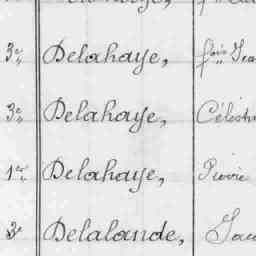 3e Delahaye, fois
3e Delahaye, Célest
1er Delahaye, Pierre
3e Delalande,